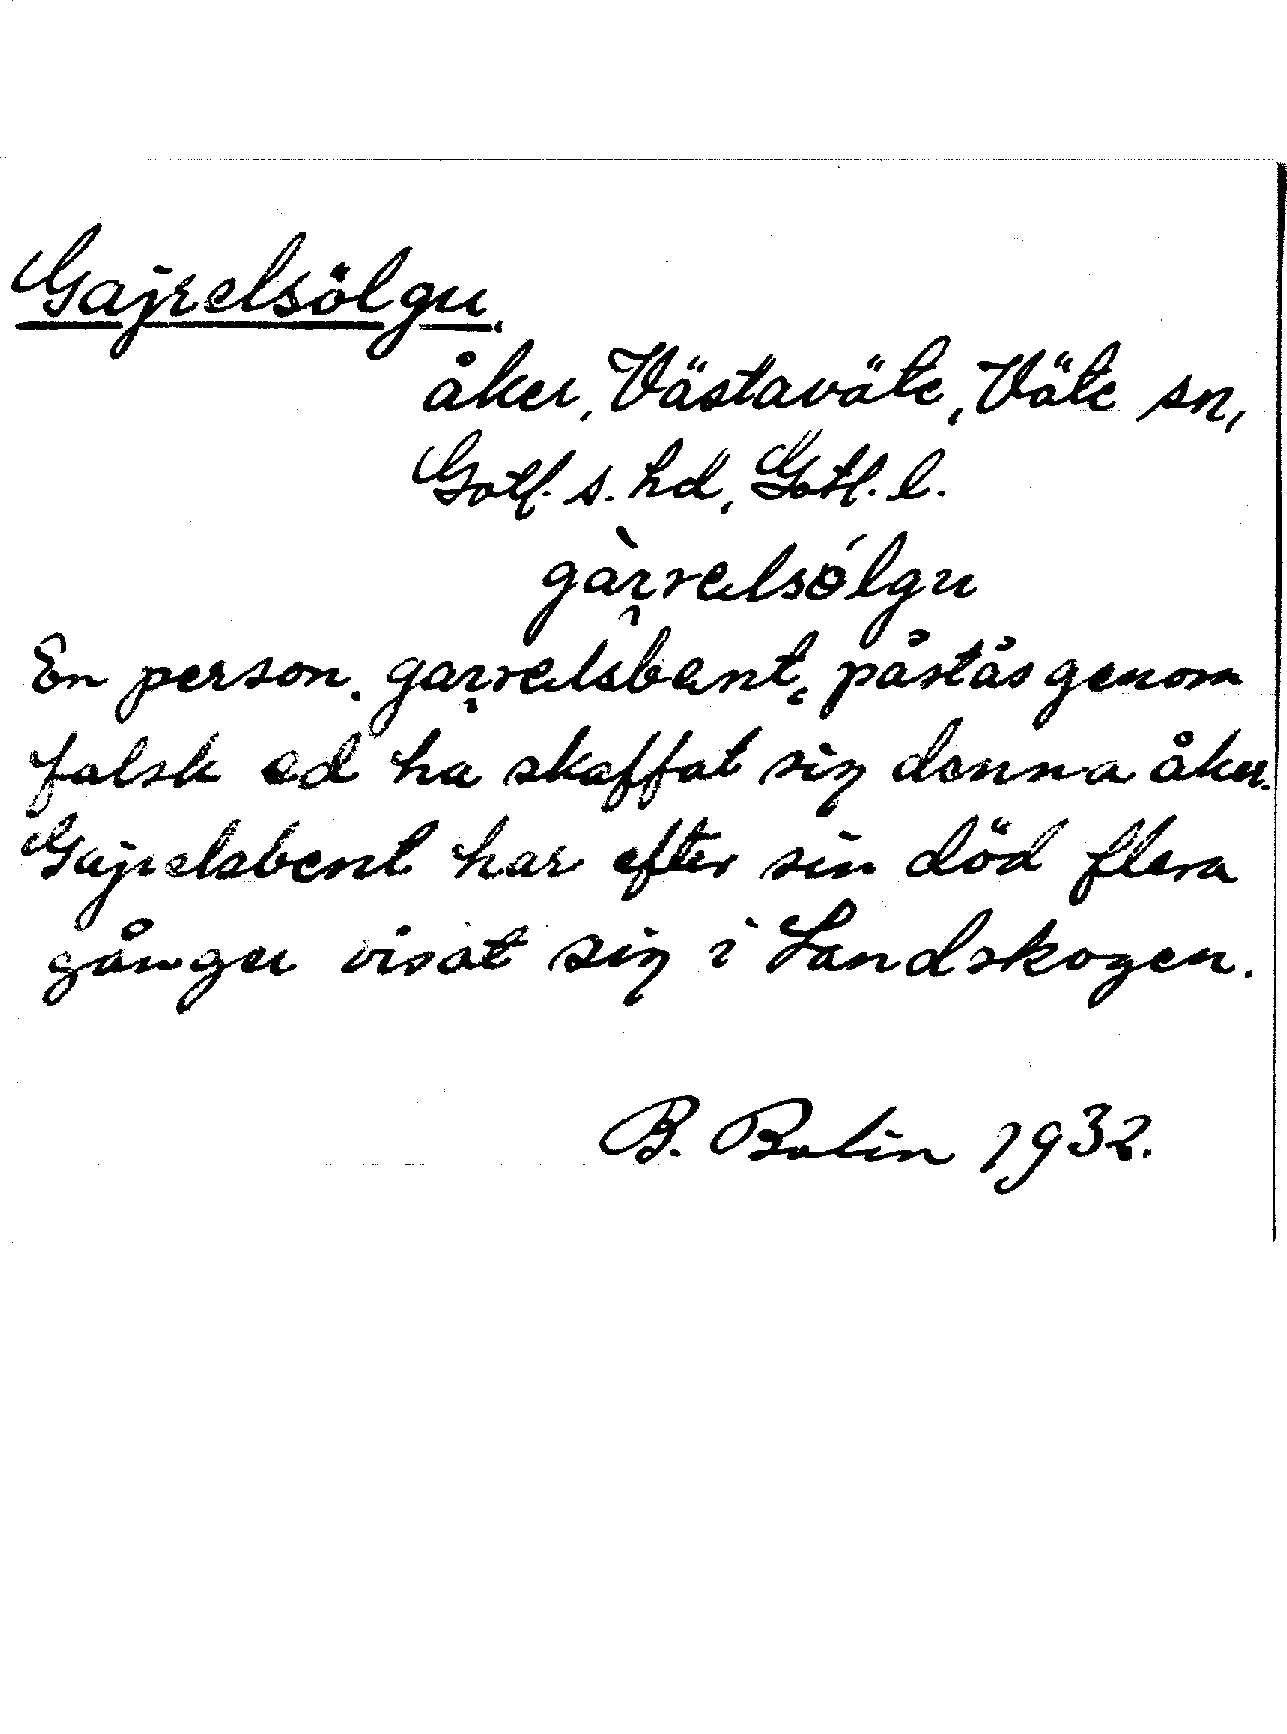 Gajrelsölgu,
åker, Västaväte, Väte sn,
Gotl. s. hd, Gotl. l.
gàı̨rəlsólgu
En person, gaı̨rəlsbent, påstås genom
falsk ed ha skaffat sig denna åker.
Gajrelsbent har efter sin död flera
gånger visat sig i Landskogen.
B. Bolin 1932.